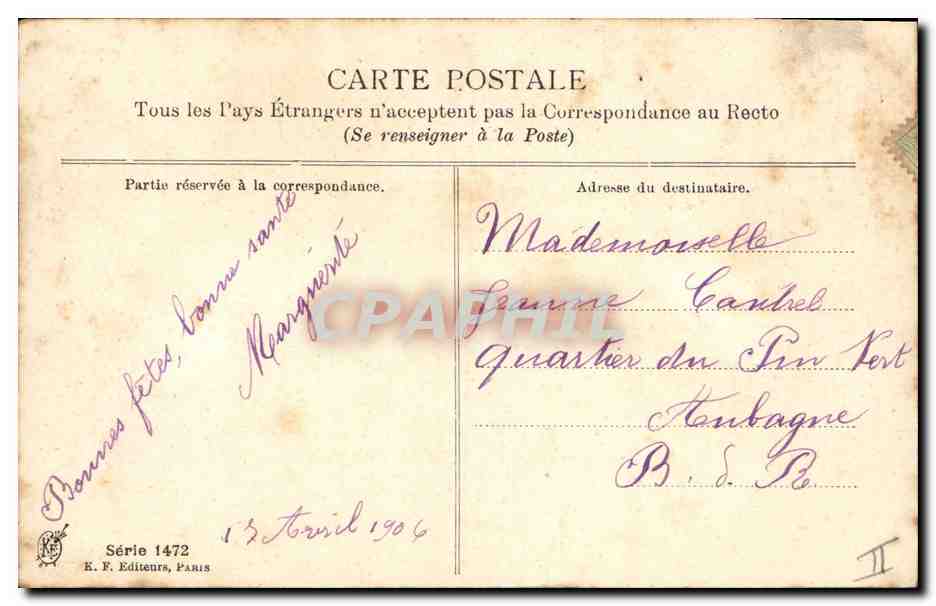 CARTE POSTALE
Tous les Pays Étrangers n'acceptent pas la Correspondance au Recto
(Se renseigner à la Poste)
Partie réservée à la correspondance.
Bonnes fêtes, bonne santé
Marguerite
13 Avril 1906
Série 1472
K. F. Editeurs, PARIS
Adresse du destinataire.
Mademoiselle
Jeanne Cantrel
quartier du Pin Vert
Aubagne
B. d. R.
II
CPAPHIL